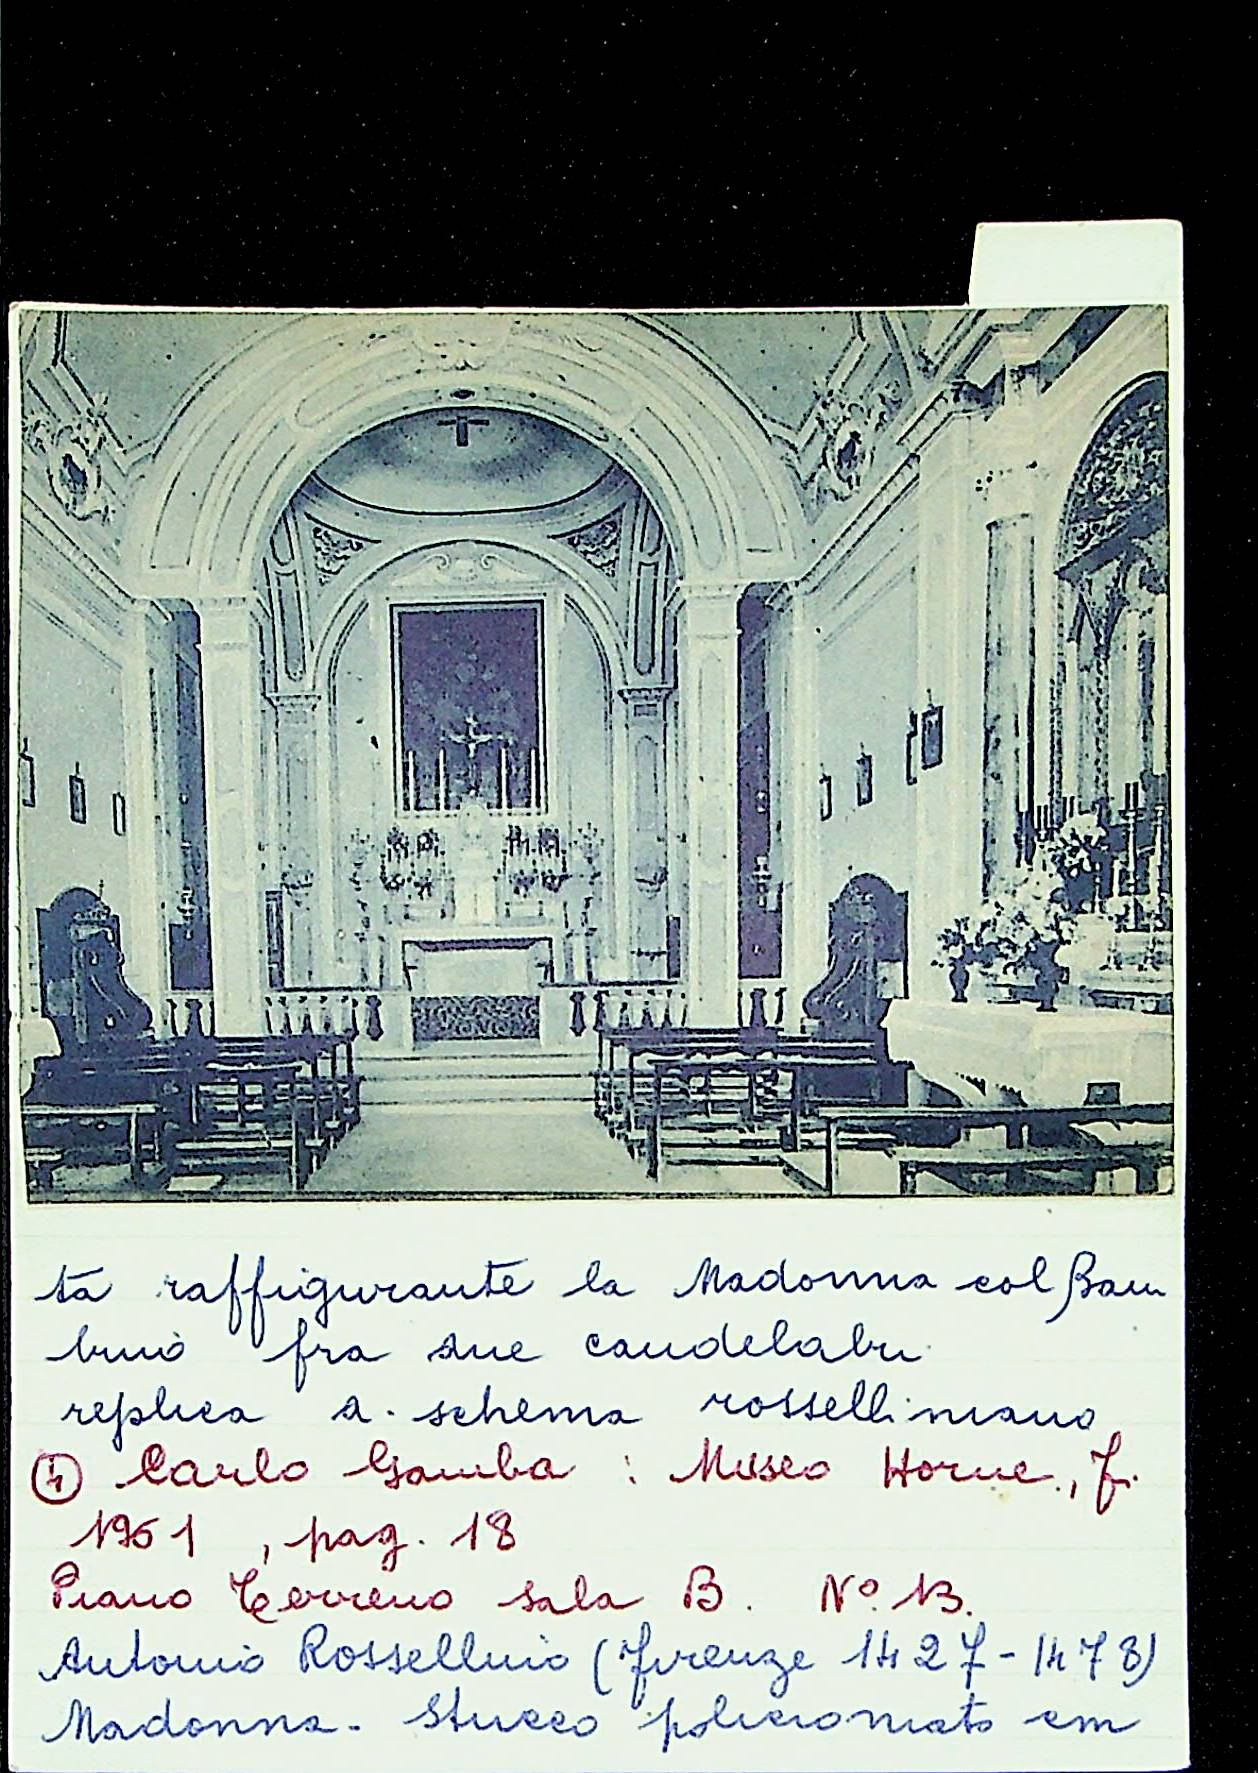 ta raffigurante la Madonna col Bam
bino fra due candelabri
replica a schema rosselliniano
④ Carlo Gamba : Museo Horne., f.
1961 , pag. 18
Piano Terreno sala B. Nº 13.
Antonio Rossellino (firenze 1427-1478)
Madonna - Stucco policromato cm